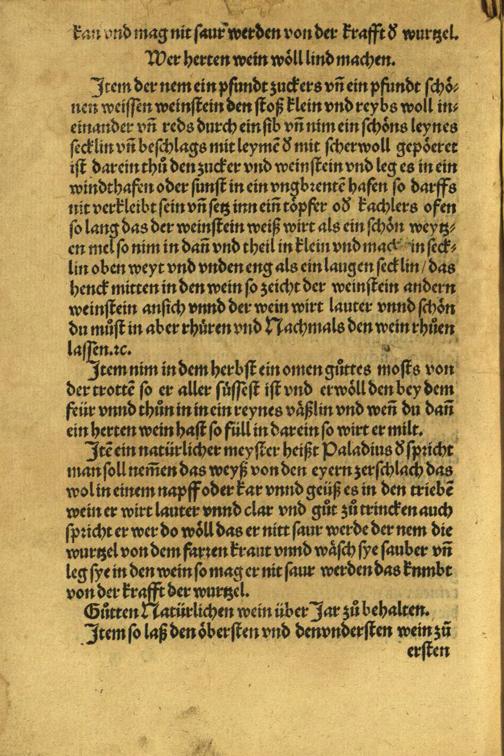 kan vnd mag nit saur werden von der krafft d̕ wurtzel.
Wer herten wein wöll lind machen.
Item der nem ein pfundt zuckers vñ ein pfundt schö⸗
nen weissen weinstein den stoß klein vnd reybs woll in⸗
einander vñ reds durch ein sib vñ nim ein schöns leynes
secklin vñ beschlags mit leymē d̕ mit scherwoll gepöeret
ist darein thů den zucker vnd weinstein vnd leg es in ein
windthafen oder sunst in ein vngbrentē hafen so darffs
nit verkleibt sein vñ setz inn ein̄ töpfer od̕ kachlers ofen
so lang das der weinstein weiß wirt als ein schön weytz⸗
en mel so nim in dañ vnd theil in klein vnd mach in seck⸗
lin oben weyt vnd vnden eng als ein laugen secklin/das
henck mitten in den wein so zeicht der weinstein andern
weinstein ansich vnnd der wein wirt lauter vnnd schön
du můst in aber rhüren vnd Nachmals den wein rhůen
lassen.ꝛc.
Item nim in dem herbst ein omen gůttes mosts von
der trotten so er aller süssest ist vnd erwöll den bey dem
feür vnnd thůn in in ein reynes väßlin vnd weñ du dañ
ein herten wein hast so füll in darein so wirt er milt.
Itē ein natürlicher meyster heißt Paladius d̕ spricht
man soll nem̄en das weyß von den eyern zerschlach das
wol in einem napff oder kar vnnd geüß es in den triebē
wein er wirt lauter vnnd clar vnd gůt zů trincken auch
spricht er wer do wöll das er nitt saur werde der nem die
wurtzel von dem farren kraut vnnd wäsch sye sauber vñ
leg sye in den wein so mag er nit saur werden das kumbt
von der krafft der wurtzel.
Gůtten Natürlichen wein über Jar zů behalten.
Item so laß den öbersten vnd den vndersten wein zů
ersten